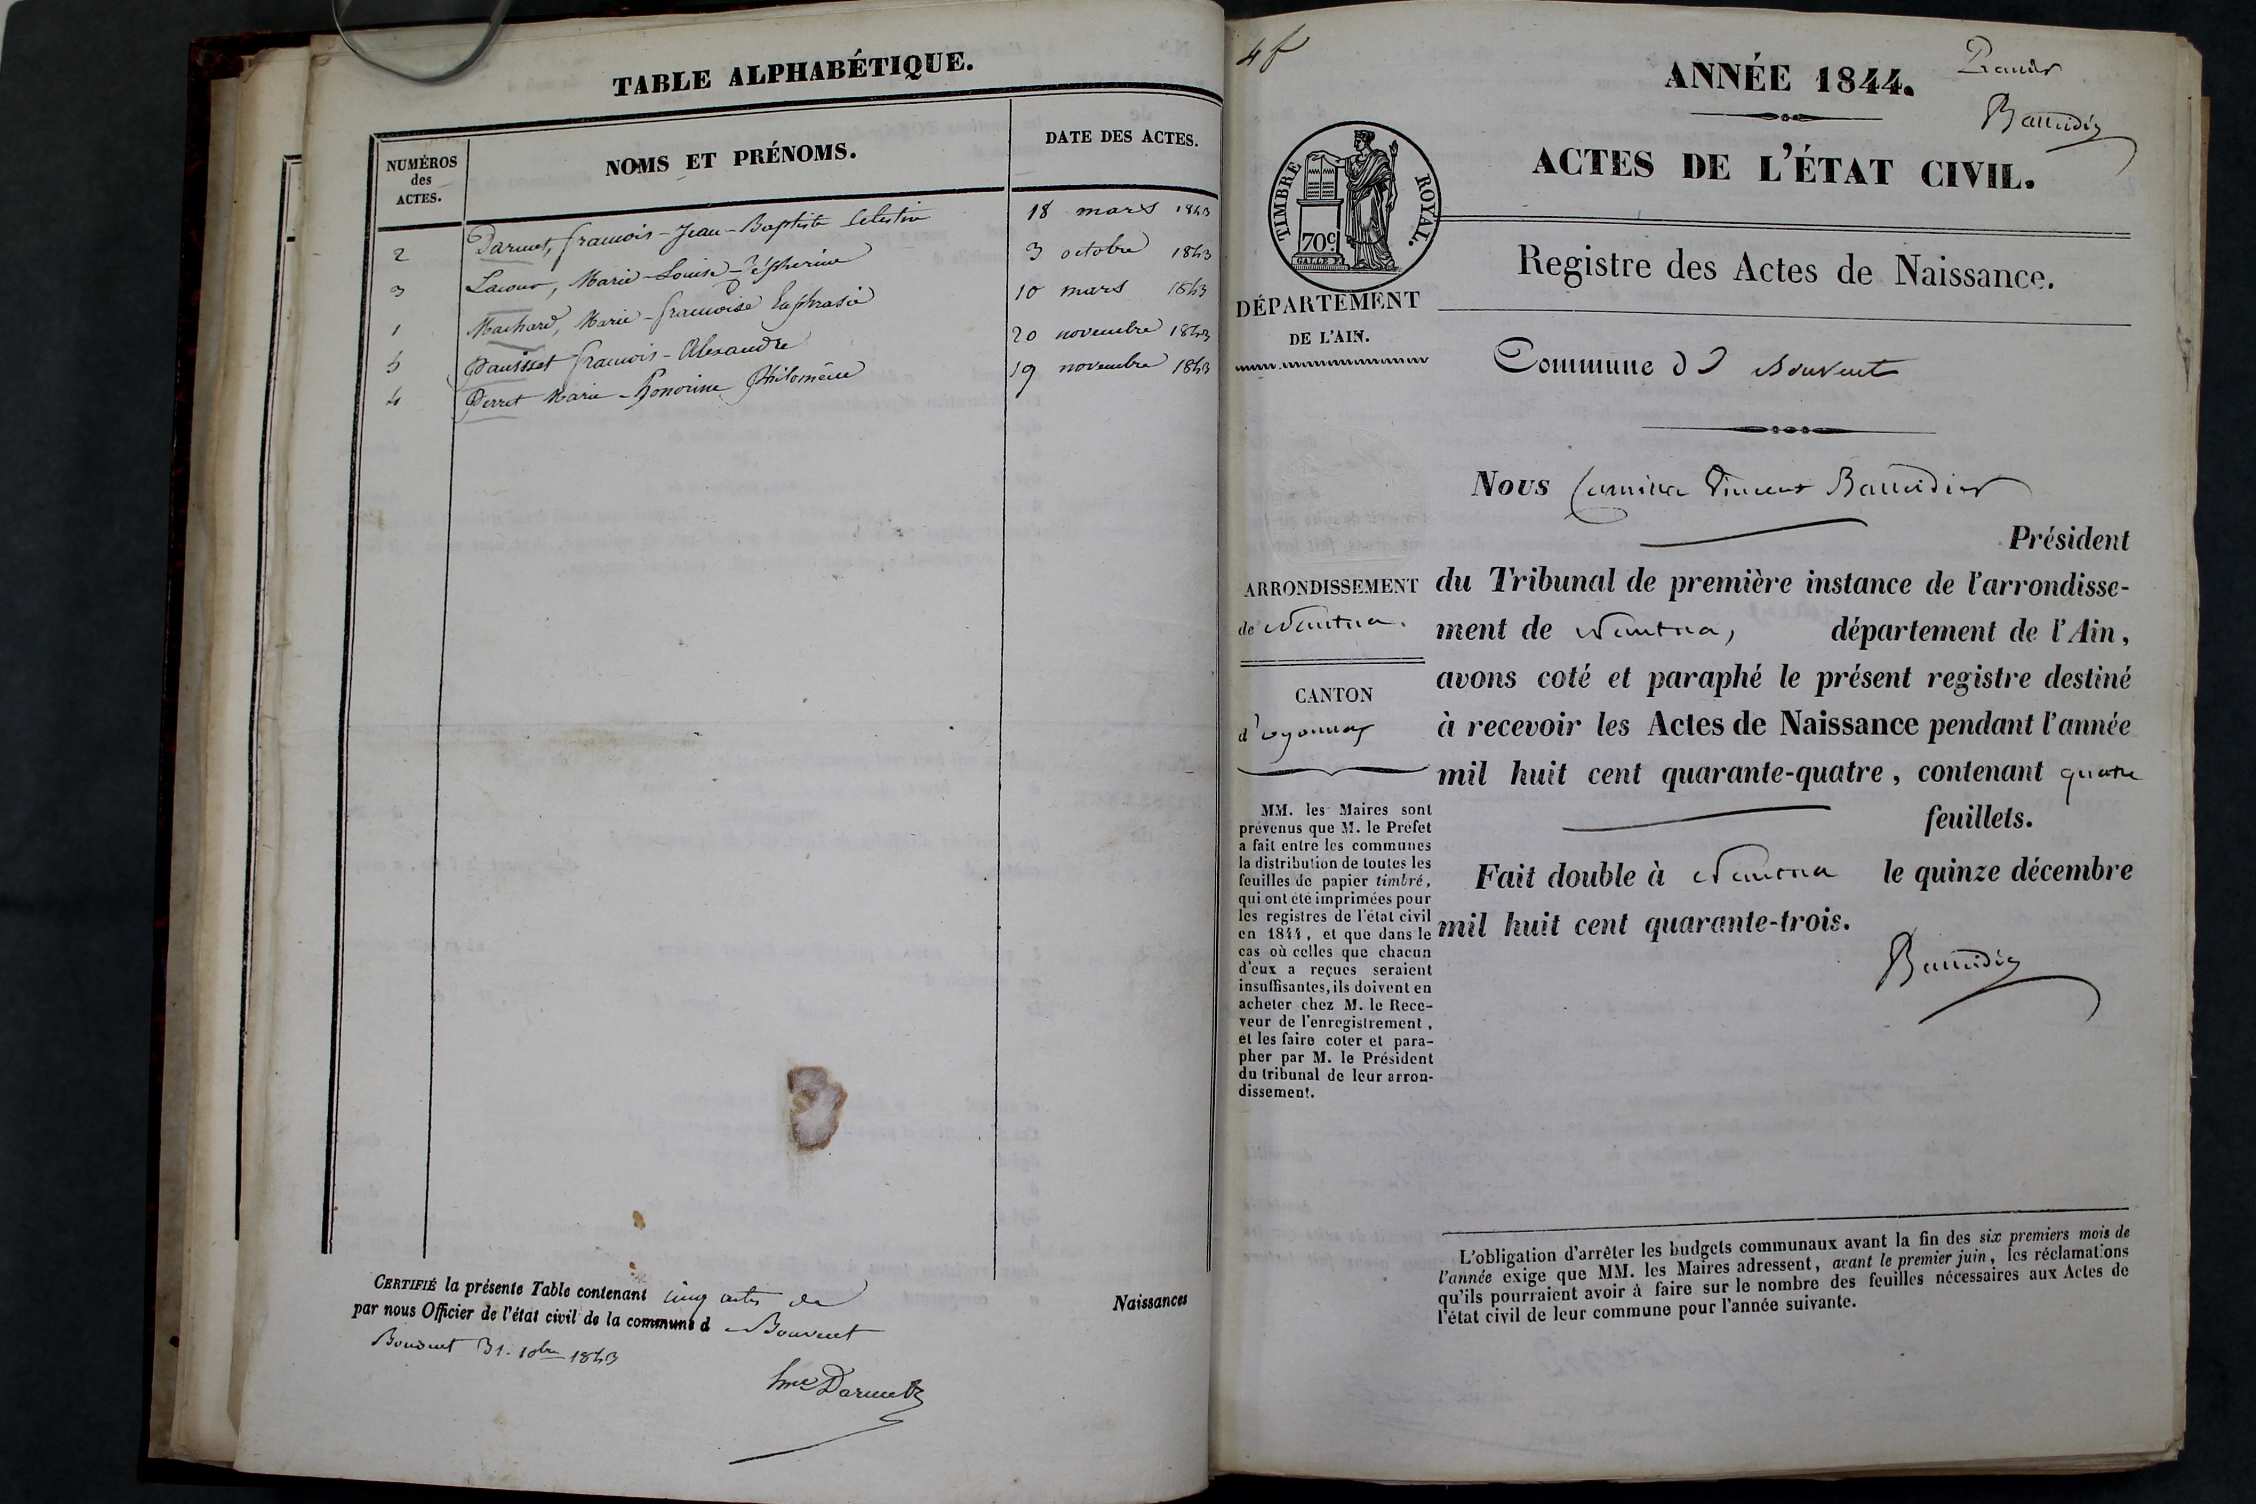 TABLE ALPHABÉTIQUE.
NUMÉROS
des
ACTES.
NOMS ET PRÉNOMS.
DATE DES ACTES.
2 Darmet, françois-Jean-Baptiste Célestin 18 mars 1843
3 Lacour, Marie-Louise-Zépherine 3 octobre 1843
1 Machard, Marie-françoise Euphrasie 10 mars 1843
5 françois-Alexandre 20 novembre 1843
4 Perret Marie-Honorine Philomène 19 novembre 1843
CERTIFIÉ la présente Table contenant cinq actes de Naissances
par nous Officier de l'état civil de la commune d Bouvent
Bouvent 31. 10bre 1843
Darmet
4 f
ANNÉE 1844.
Premier
Baudin
ACTES DE L'ÉTAT CIVIL.
TIMBRE ROYAL.
70c.
GALLE F.
Registre des Actes de Naissance.
DÉPARTEMENT
DE L'AIN.
Commune de Bouvent
Nous Vincent
Président
ARRONDISSEMENT
de Nantua.
CANTON
d'oyonnax
du Tribunal de première instance de l'arrondisse-
ment de Nantua, département de l'Ain,
avons coté et paraphé le présent registre destiné
à recevoir les Actes de Naissance pendant l'année
mil huit cent quarante-quatre, contenant quatre
feuillets.
Fait double à Nantua le quinze décembre
mil huit cent quarante-trois.
MM. les Maires sont
prévenus que M. le Prefet
a fait entre les communes
la distribution de toutes les
feuilles de papier timbré,
qui ont été imprimées pour
les registres de l'état civil
en 1844, et que dans le
cas où celles que chacun
d'eux a reçues seraient
insuffisantes, ils doivent en
acheter chez M. le Rece-
veur de l'enregistrement,
et les faire coter et para-
pher par M. le Président
du tribunal de leur arron-
dissement.
L'obligation d'arrêter les budgets communaux avant la fin des six premiers mois de
l'année exige que MM. les Maires adressent, avant le premier juin, les réclamations
qu'ils pourraient avoir à faire sur le nombre des feuilles nécessaires aux Actes de
l'état civil de leur commune pour l'année suivante.